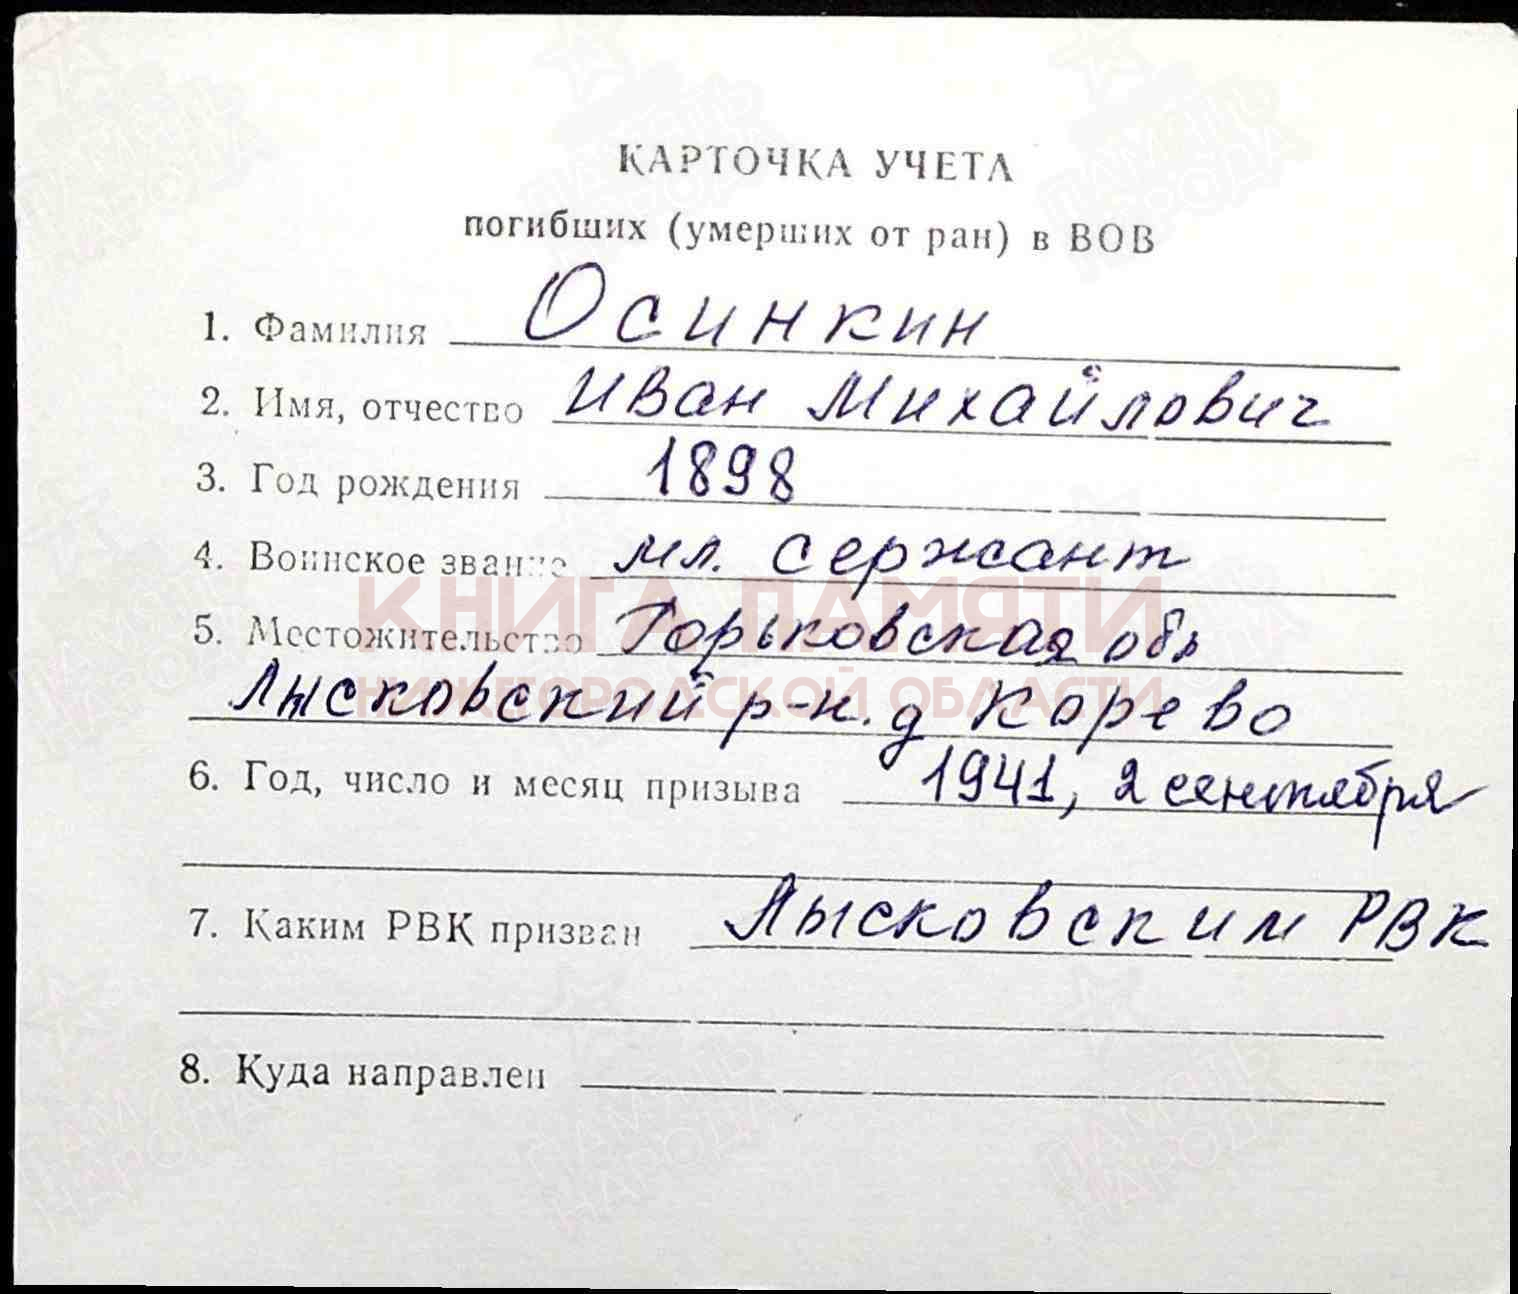 КАРТОЧКА УЧЕТА
погибших (умерших от ран) в ВОВ
1. Фамилия Осинкин
2. Имя, отчество Иван Михайлович
3. Год рождения 1898
4. Воинское звание мл. сержант
КНИГА ПАМЯТИ
5. Местожительство Горьковская обл
НИЖЕГОРОДСКОЙ ОБЛАСТИ
Лысковский р-н. д Корево
6. Год, число и месяц призыва 1941, 2 сентября
7. Каким РВК призван Лысковским РВК
8. Куда направлен